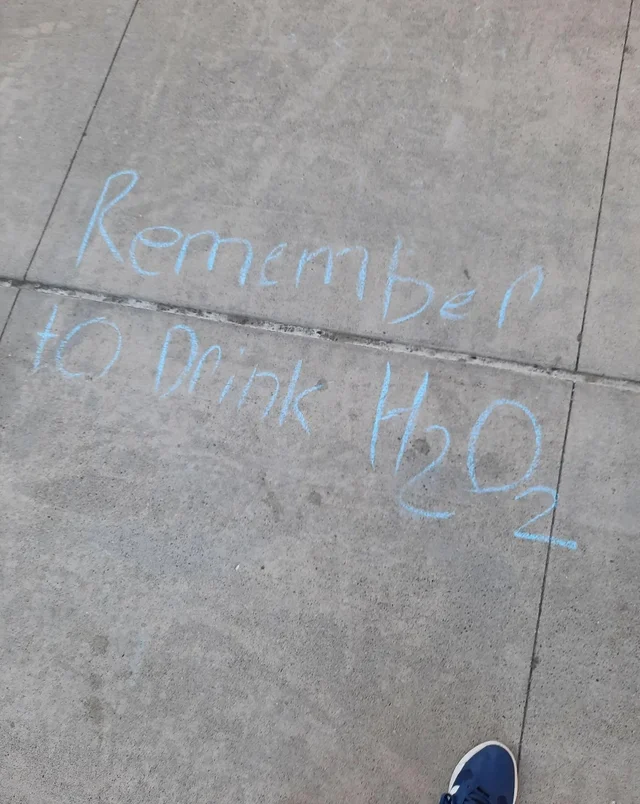 Remember
to Drink H₂O₂